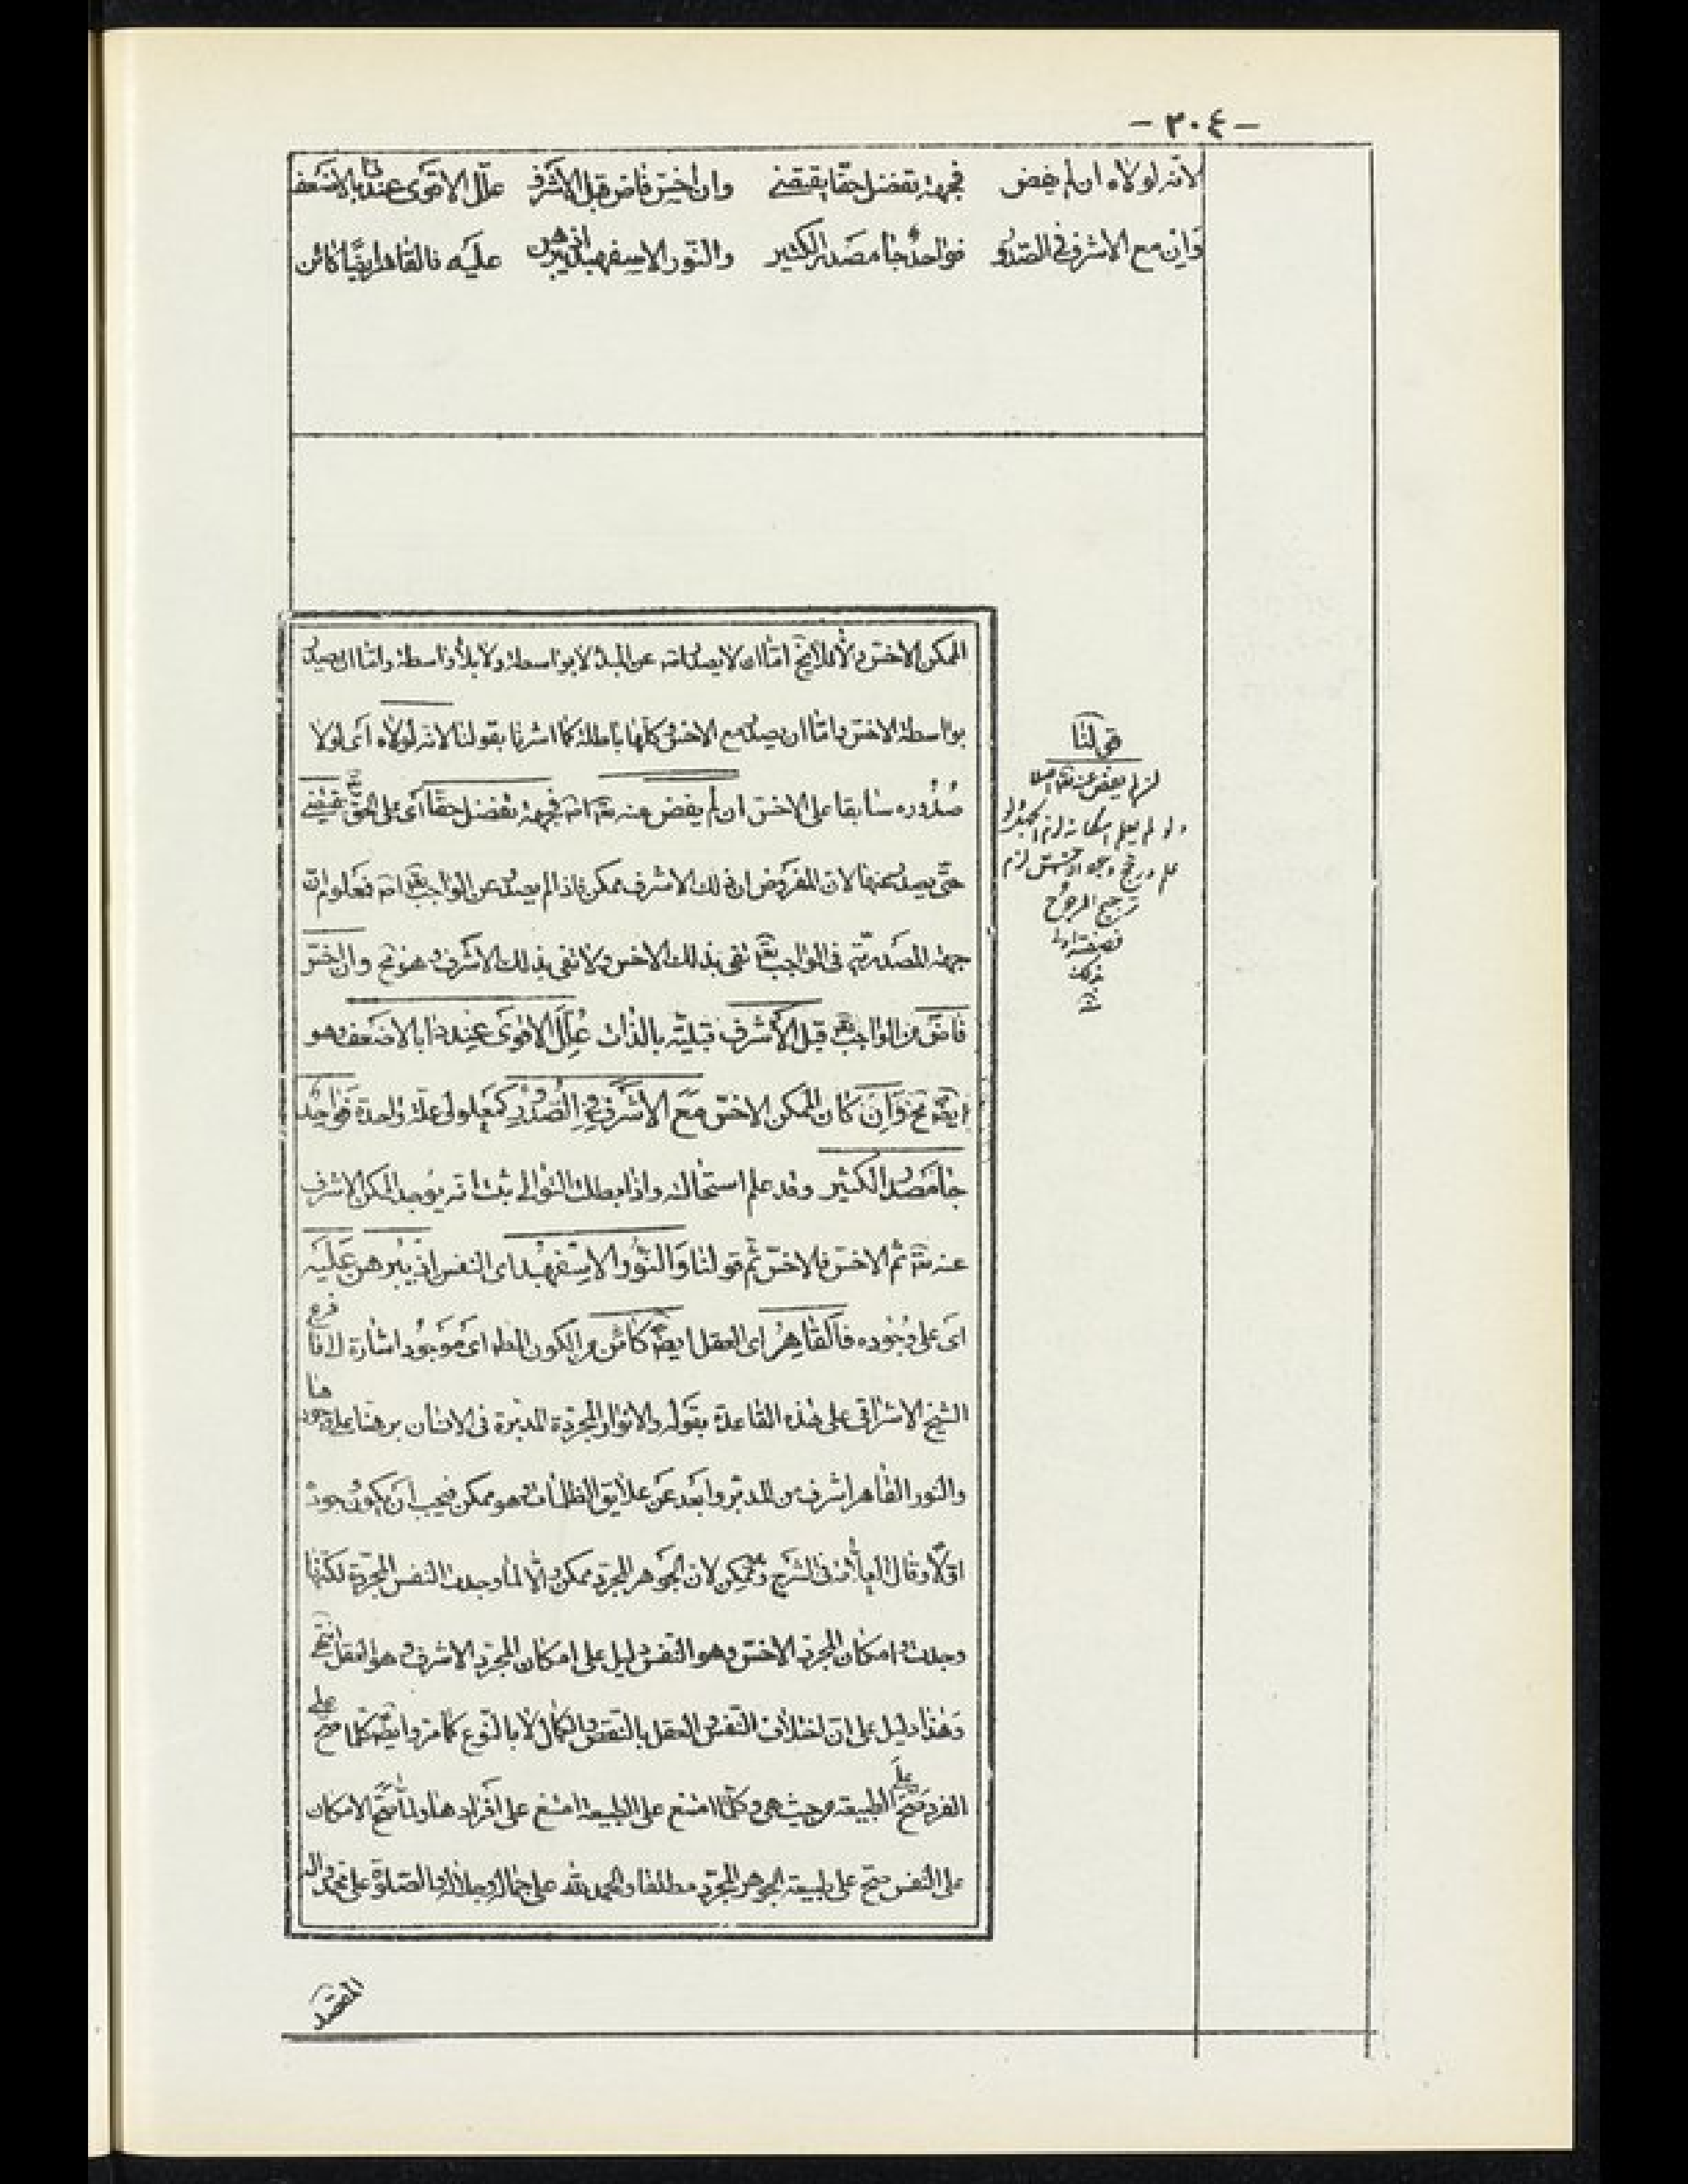 - ٢٠٤ -
لانه لولاه ان لم يفض فجهة تفضل حقا يقتضى وان اخس فاض قبل الاشرف علل الاقوى عندها بالاضعف
وان مع الاشرف فى الصدو فواحد جا مصدر الكثير والنور الاسفهبد ان يبرهن عليه فالقاهر ايضا كائن
الممكن الاخس والا فلا يخ اما ان لا يصدر انه عن المبدء لا بواسطة ولا بلا واسطة واما ان يصدر
بواسطة الاخس واما ان يصدر مع الاخس كلها باطلة كما اشرنا بقولنا لانه لولاه اى لولا
صدوره سابقا على الاخس ان لم يفض منه تعالى فجهة تفضل حقا اى على الحق تع يقتضى
حتى يصدر عنها لان المفروض ان ذلك الاشرف ممكن فاذا لم يصدر عن الواجب تعالى فعلوم ان
جهة المصدرية فى الواجب تع تفى بذلك الاخس ولا تفى بذلك الاشرف وهو مح وان اخس
فاض من الواجب تع قبل الاشرف قبلية بالذات علل الاقوى عندها بالاضعف وهو
ايضا مح وان كان الممكن الاخس مع الاشرف فى الصدور كمعلولى علة واحدة فواحد
جا مصدر الكثير وقد علم استحالته واذا بطلت التوالى ثبت انه يوجد الممكن الاشرف
عنه تع ثم الاخس فالاخس ثم قولنا والنور الاسفهبد اى النفس اذ يبرهن عليه
اى على وجوده فالقاهر اى العقل ايضا كائن من الكون المطلق اى موجود اشارة الى ما فرع
الشيخ الاشراقى على هذه القاعدة بقوله والانوار المجردة المدبرة فى الانسان برهنا على وجودها
والنور القاهر اشرف من المدبر وابعد عن علايق الظلمات وهو ممكن فيجب ان يكون وجوده
اولا وقال العلامة فى الشرح وهو ممكن لان الجوهر المجرد ممكن والا لما وجدت النفس المجردة لكنها
وجدت امكان المجرد الاخس وهو النفس دليل على امكان المجرد الاشرف وهو العقل انتهى
وهذا دليل على ان اختلاف النفس والعقل بالنقص والكمال لا بالنوع كما مر وايضا كلما صح على
الفرد صح على الطبيعة من حيث هى وكلما امتنع على الطبيعة امتنع على افرادها ولما صح الامكان
على النفس صح على طبيعة الجوهر المجرد مطلقا والحمد لله على جماله وجلاله والصلوة على محمد واله
قولنا
لم يفض عنه تعالى اصلا
ترجيح المرجوح
المقصد